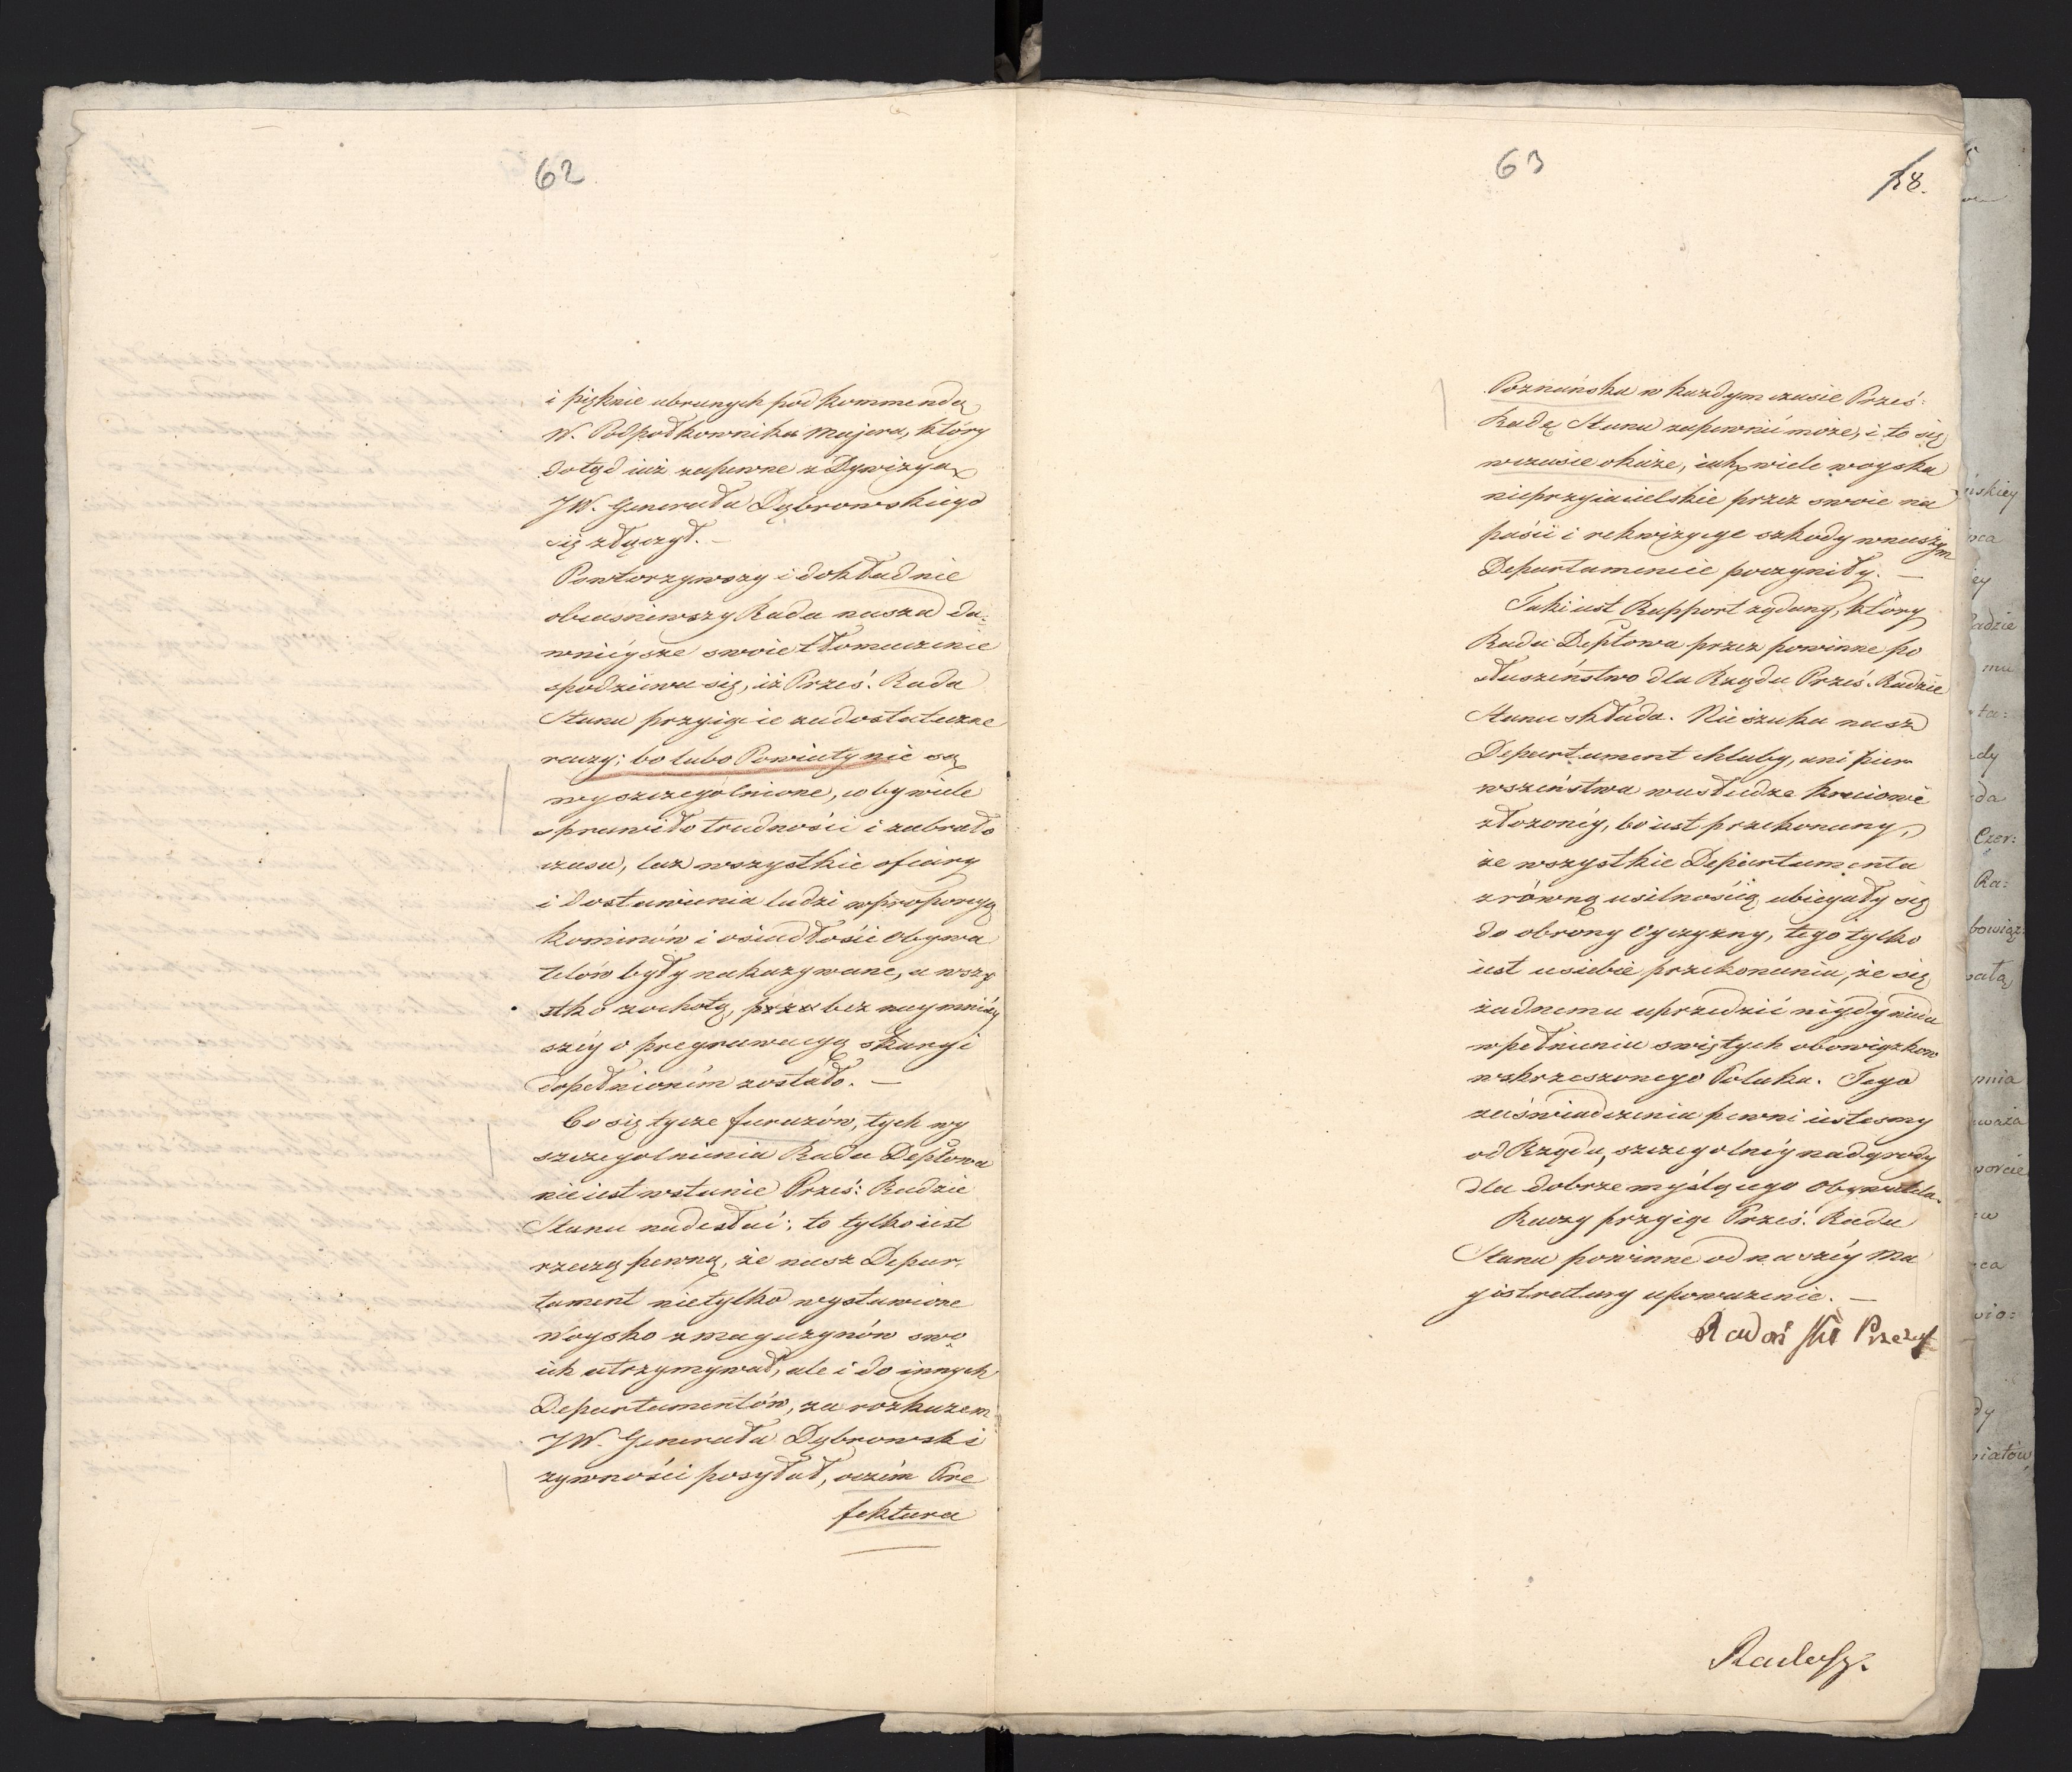 62
i pięknie ubranych pod kommendą
W. Podpołkownika Majera, który
dotąd iuż zapewne z Dywizyą
JW. Generała Dąbrowskiego
się złączył. —
Powtorzywszy i dokładnie
obiasniwszy Rada nasza da:
wnieysze swoie tłomaczenie
spodziewa się, iż Prześ: Rada
Stanu przyiąć ie za dostateczne
raczy; bo lubo Powiaty nie są
wyszczegolnione, coby wiele
sprawiło trudności i zabrało
czasu, lecz wszystkie ofiary
i dostawienia ludzi w proporcyą
kominów i osiadłości Obywa
telów były nakazywane, a wszy
stko z ochotą, bez naymniey
széy o pregrawacyą skargi
dopełnioném zostało. —
Co się tycze furazów, tych wy
szczegolnienia Rada Depltowa
nie iest w stanie Prześ: Radzie
Stanu nadesłać; to tylko iest
rzeczą pewną, że nasz Depar
tament nietylko wystawione
Woysko z magazynów swo
ich utrzymywał, ale i do innych
Departamentów, za rozkazem
JW. Generała Dąbrowski
zywności posyłał, oczém Pre
fektura
63
18.
Poznańska w kazdym czasie Prześ:
Radę Stanu zapewnić może, i to się
w czasie okaże, iak wiele woyska
nieprzyiacielskie przez swoie na
paści i rekwizycye szkody w naszym
Departamencie poczyniły. —
Taki iest Rapport żądany, który
Rada Depltowa przez powinne po
słuszeństwo dla Rządu Prześ. Radzie
Stanu składa. Nie szuka nasz
Departament chluby, ani pier
wszeństwa w usłudze kraiowi
złozonéy, bo iest przekonany,
że wszystkie Departamenta
z równą usilnością ubiegały się
do obrony Oyczyzny, tego tylko
iest u siebie przekonania, że się
żadnemu uprzedzić nigdy nieda
w pełnieniu swiętych obowiązkow
wskrzeszonego Polaka. Tego
zaświadczenia pewni iestesmy
od Rządu, szczegolnéy nadgrody
dla dobrze myślącego Obywatela.
Raczy przyiąć Prześ: Rada
Stanu powinne od naszéy Ma
gistratury upowazenie. —
Radoński Prezes